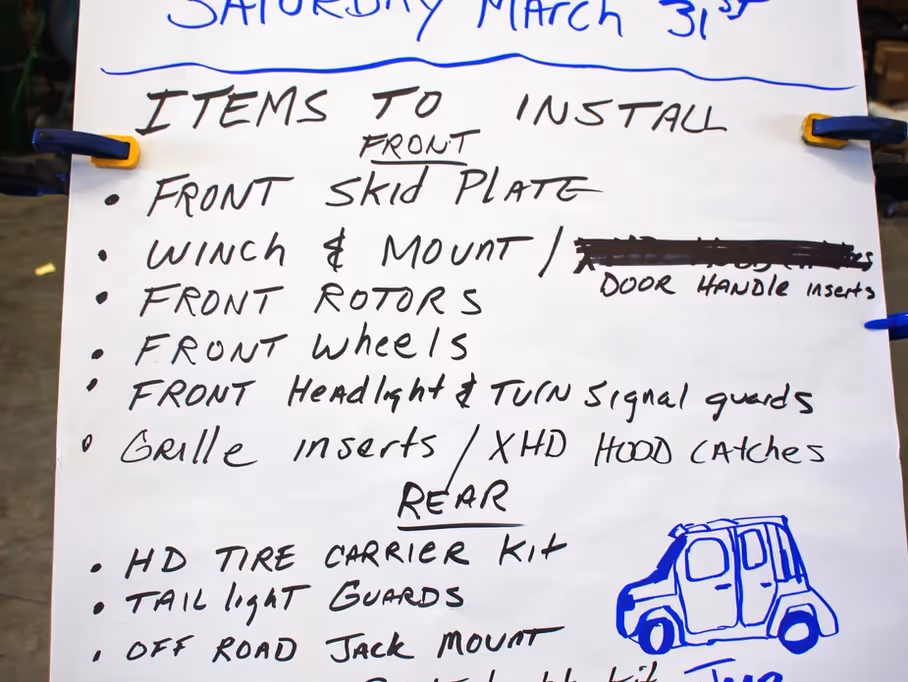 SATURDAY MARCH 31ST
ITEMS TO INSTALL
FRONT
• FRONT SKid PLATE
• WINCh & MOUNT /
DOOR HANdle inserts
• FRONT ROTORS
• FRONT wheels
• FRONT Headlight & TURN Signal guards
• Grille inserts / XHD HOOD CAtches
REAR
• HD TIRE CARRIER Kit
• TAIL light GUARDS
• OFF ROAD Jack MOUNT
kit